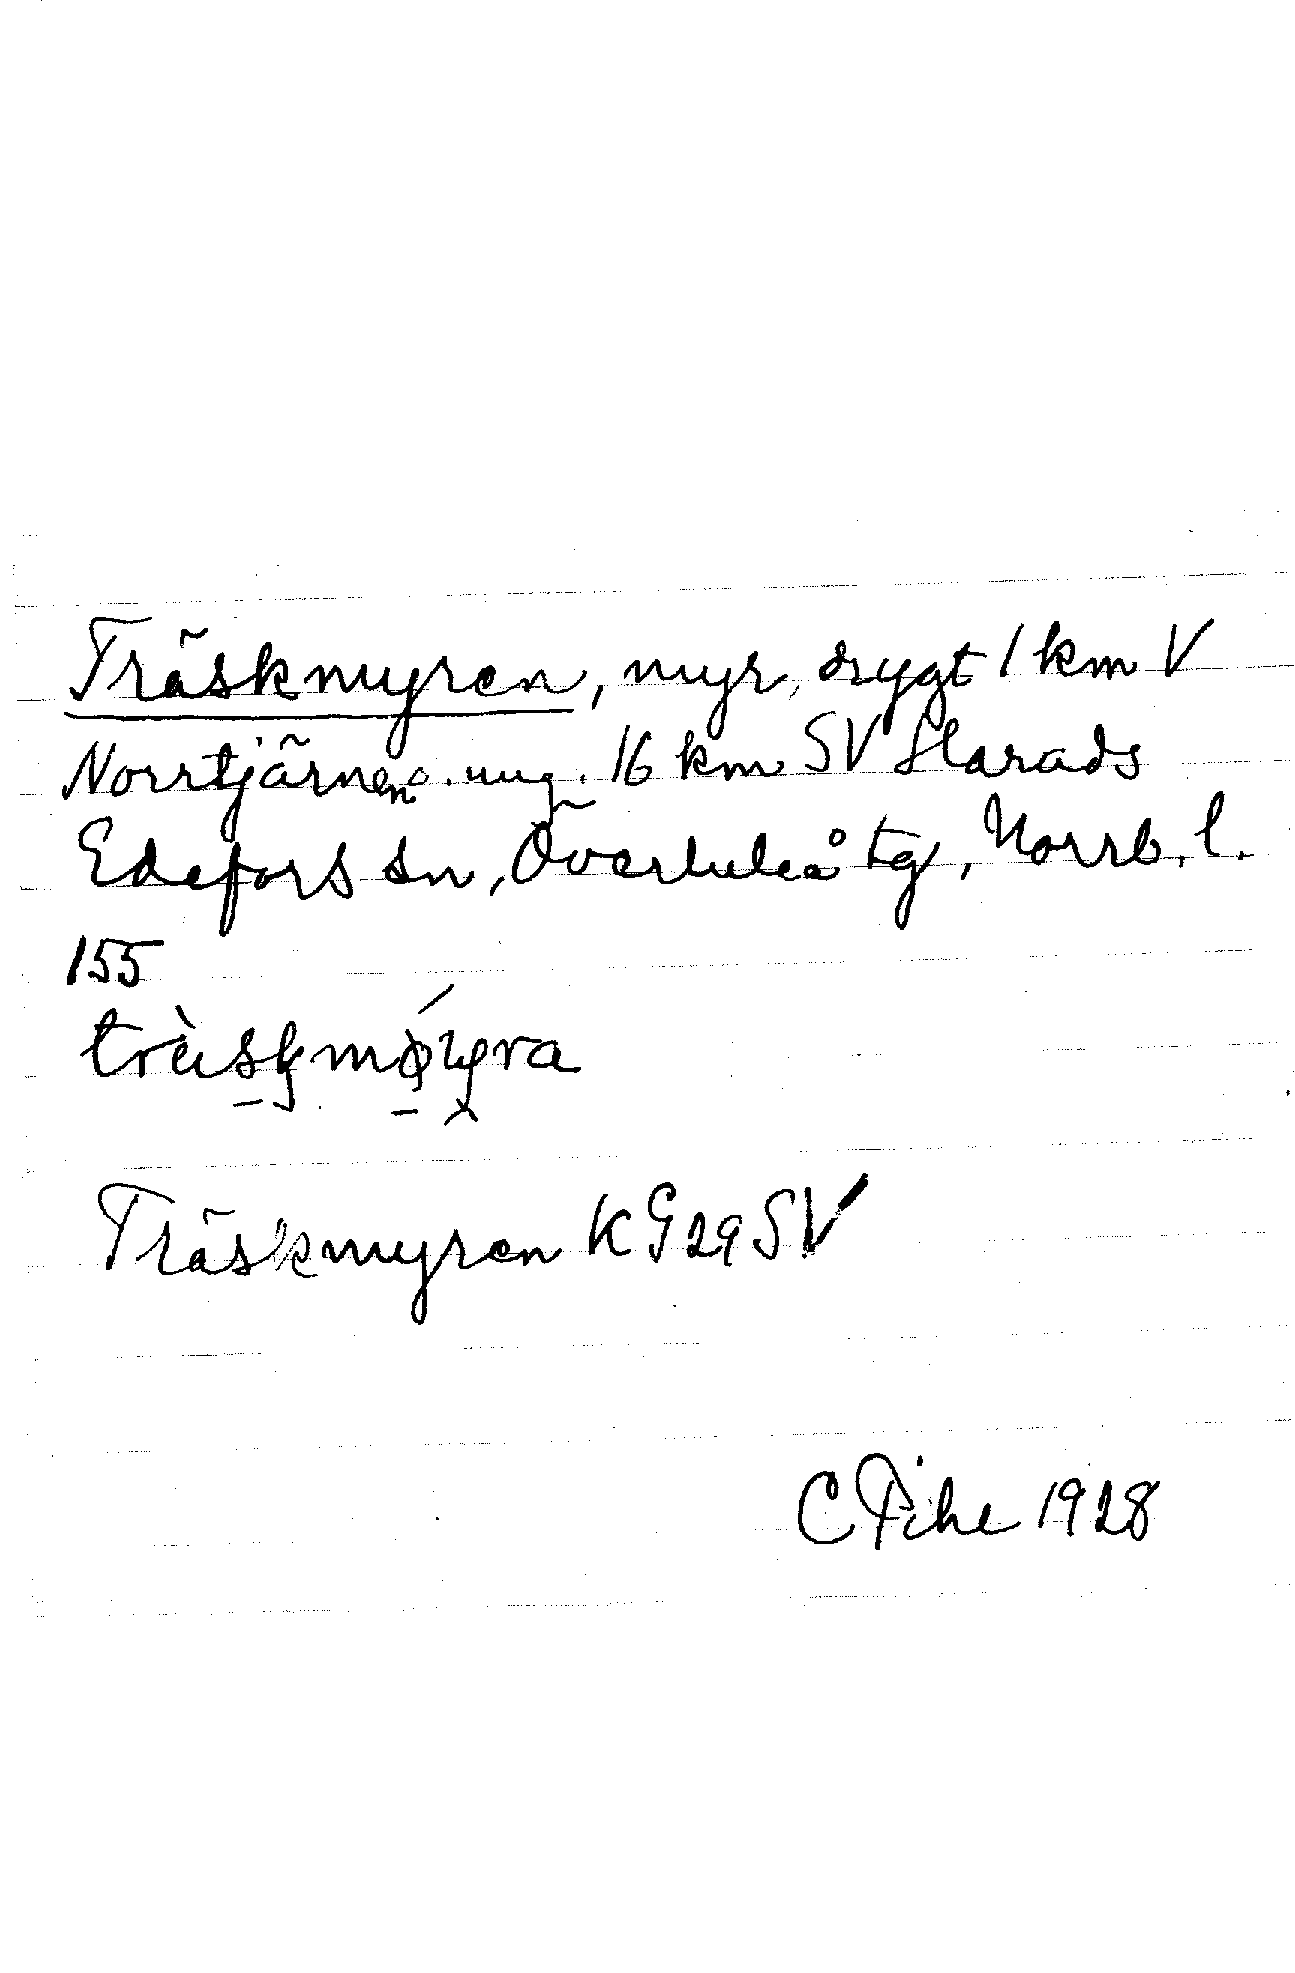 Träskmyren, myr, drygt 1 km V
Norrtjärnen o. ung. 16 km SV Harads
Edefors sn, Överluleå tg, Norrb. l.
155
Träskmyren KG 29 SV
C Pihl 1928